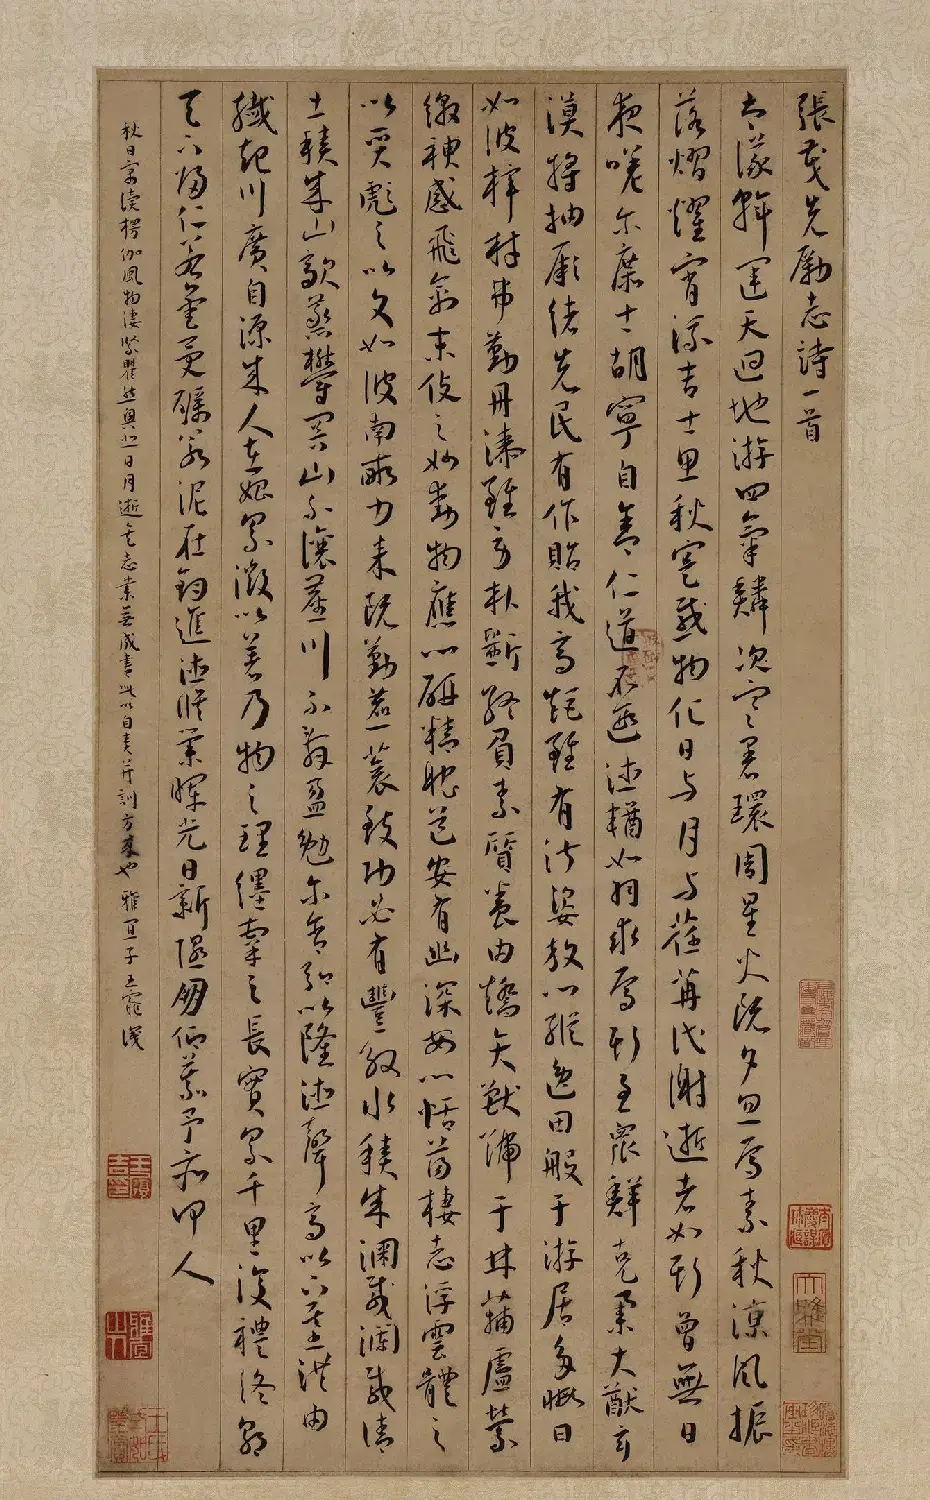 張茂先勵志詩一首
大儀斡運天迴地游四氣鱗次寒暑環周星火既夕忽焉素秋涼風振
落熠燿宵流吉士思秋寔感物化日与月与荏苒代謝逝者如斯曾無日
夜嗟尔庶士胡寧自舍仁道不遐德輶如羽求焉斯至眾鮮克舉大猷玄
漠將抽厥緒先民有作貽我高矩雖有淑姿放心縱逸田般于游居多暇日
如彼梓材弗勤丹漆雖勞朴斲終負素質養由矯矢獸號于林蒱盧縈
繳神感飛禽末伎之妙動物應心研精耽道安有幽深安心恬蕩棲志浮雲體之
以質彪之以文如彼南畝力耒既勤藨蓘致功必有豐殷水積成淵載瀾載清
土積成山歊蒸鬱冥山不讓塵川不辭盈勉尔含弘以隆德聲高以下基洪由
纖起川廣自源成人在始累微以著乃物之理纆牽之長實累千里復禮終朝
天下歸仁若金受礪若泥在鈞進德脩業暉光日新隰朋仰慕予亦何人
秋日讀楞伽風物淒緊瞿然興悲日月逝矣志業無成書此以自責并訓方來也 雅宜子王寵識